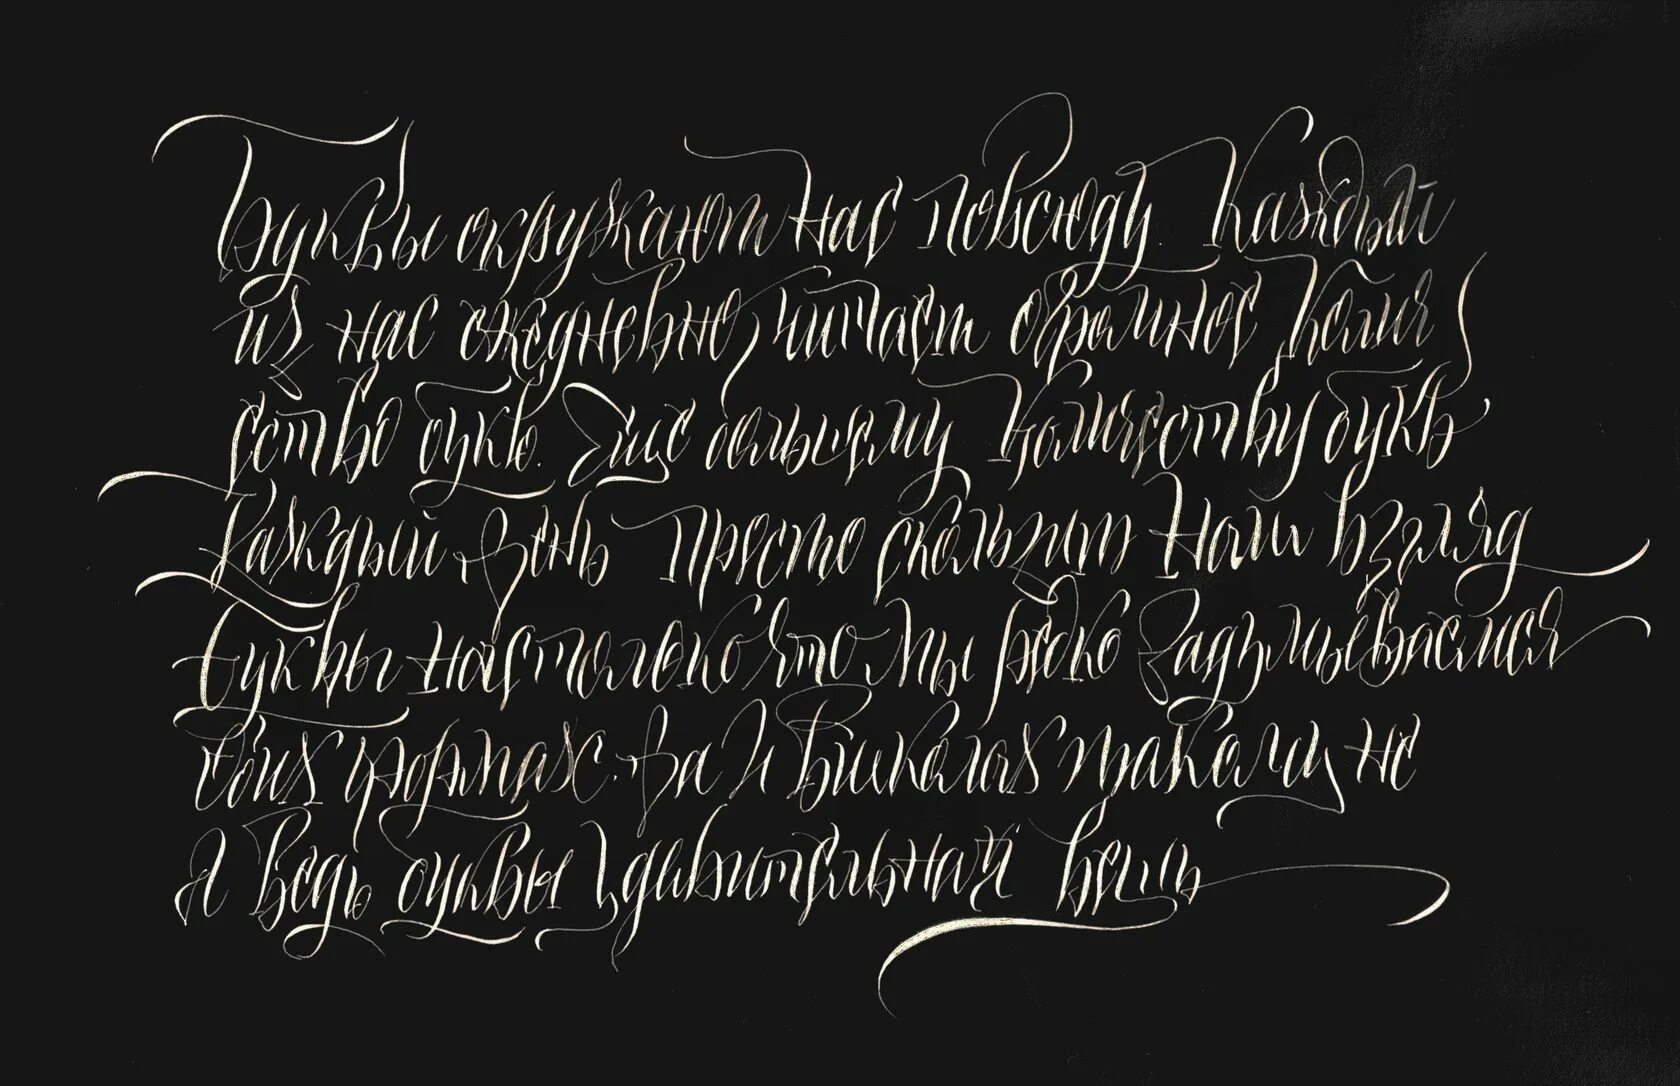 Буквы окружают нас повсюду. Каждый
из нас ежедневно читает огромное колич
ество букв. Еще большему количеству букв
каждый день просто скользит наш взгляд
Буквы настолько что мы редко задумываемся
о их формах. Да и в школах такому не
А ведь буквы удивительная вещь